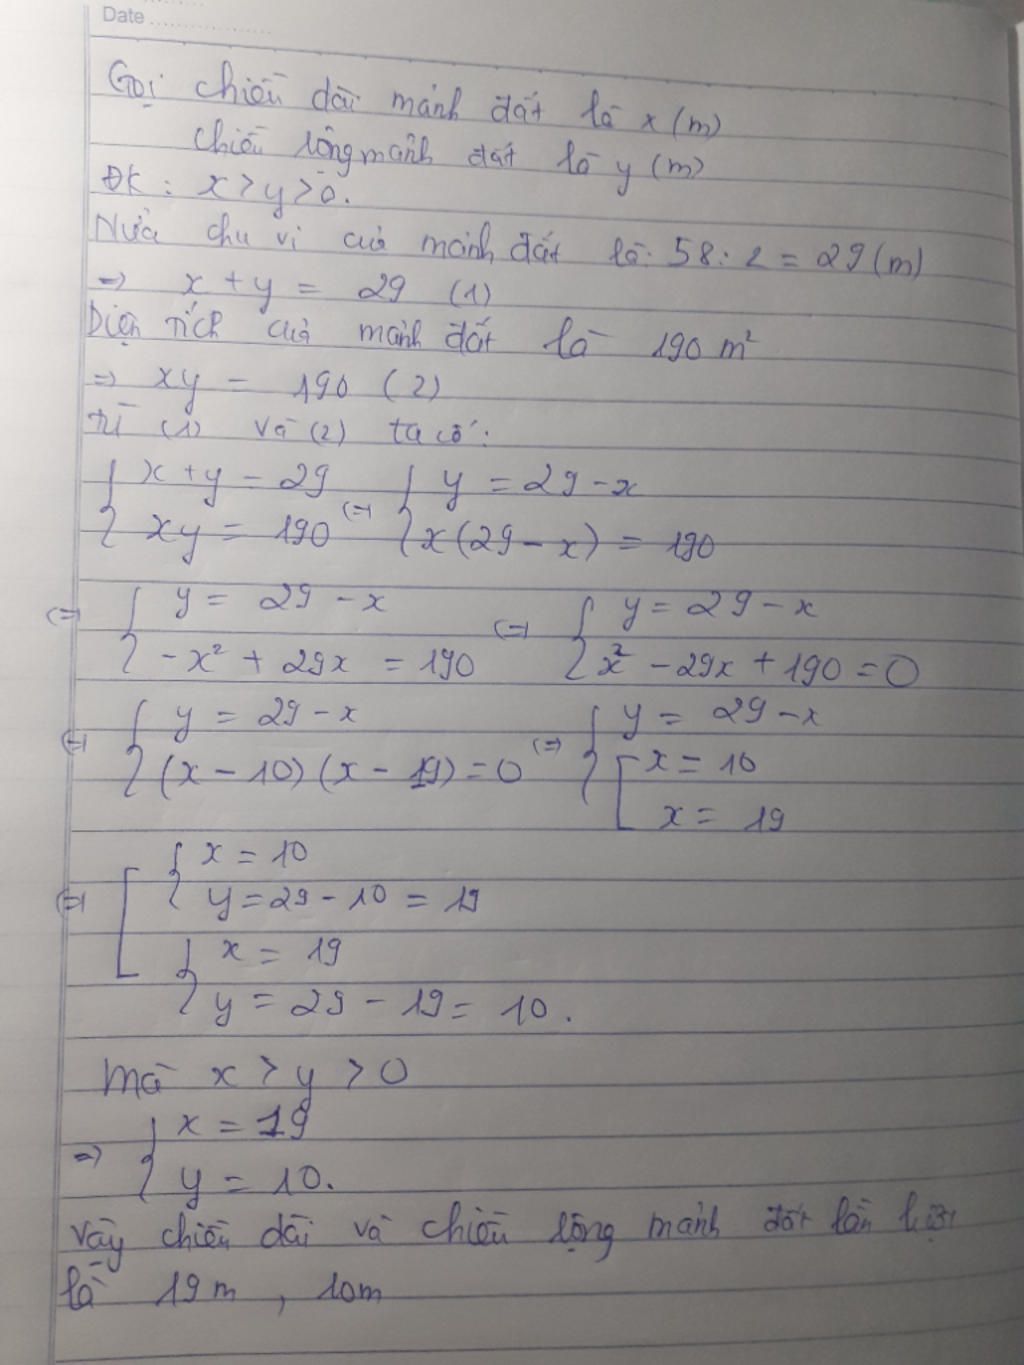 Date
Gọi chiều dài mảnh đất là x (m)
chiều rộng mảnh đất là y (m)
ĐK : x > y > 0.
Nửa chu vi của mảnh đất là: 58 : 2 = 29 (m)
=> x + y = 29 (1)
Diện tích của mảnh đất là 190 m²
=> xy = 190 (2)
từ (1) và (2) ta có:
{ x + y = 29 { y = 29 - x
{ xy = 190 <=> { x(29 - x) = 190
<=> { y = 29 - x <=> { y = 29 - x
{ -x² + 29x = 190 { x² - 29x + 190 = 0
<=> { y = 29 - x <=> { y = 29 - x
{ (x - 10)(x - 19) = 0 { [ x = 10
[ x = 19
{ x = 10
<=> [ { y = 29 - 10 = 19
{ x = 19
{ y = 29 - 19 = 10.
mà x > y > 0
=> { x = 19
{ y = 10.
Vậy chiều dài và chiều rộng mảnh đất lần lượt
là 19 m , 10m